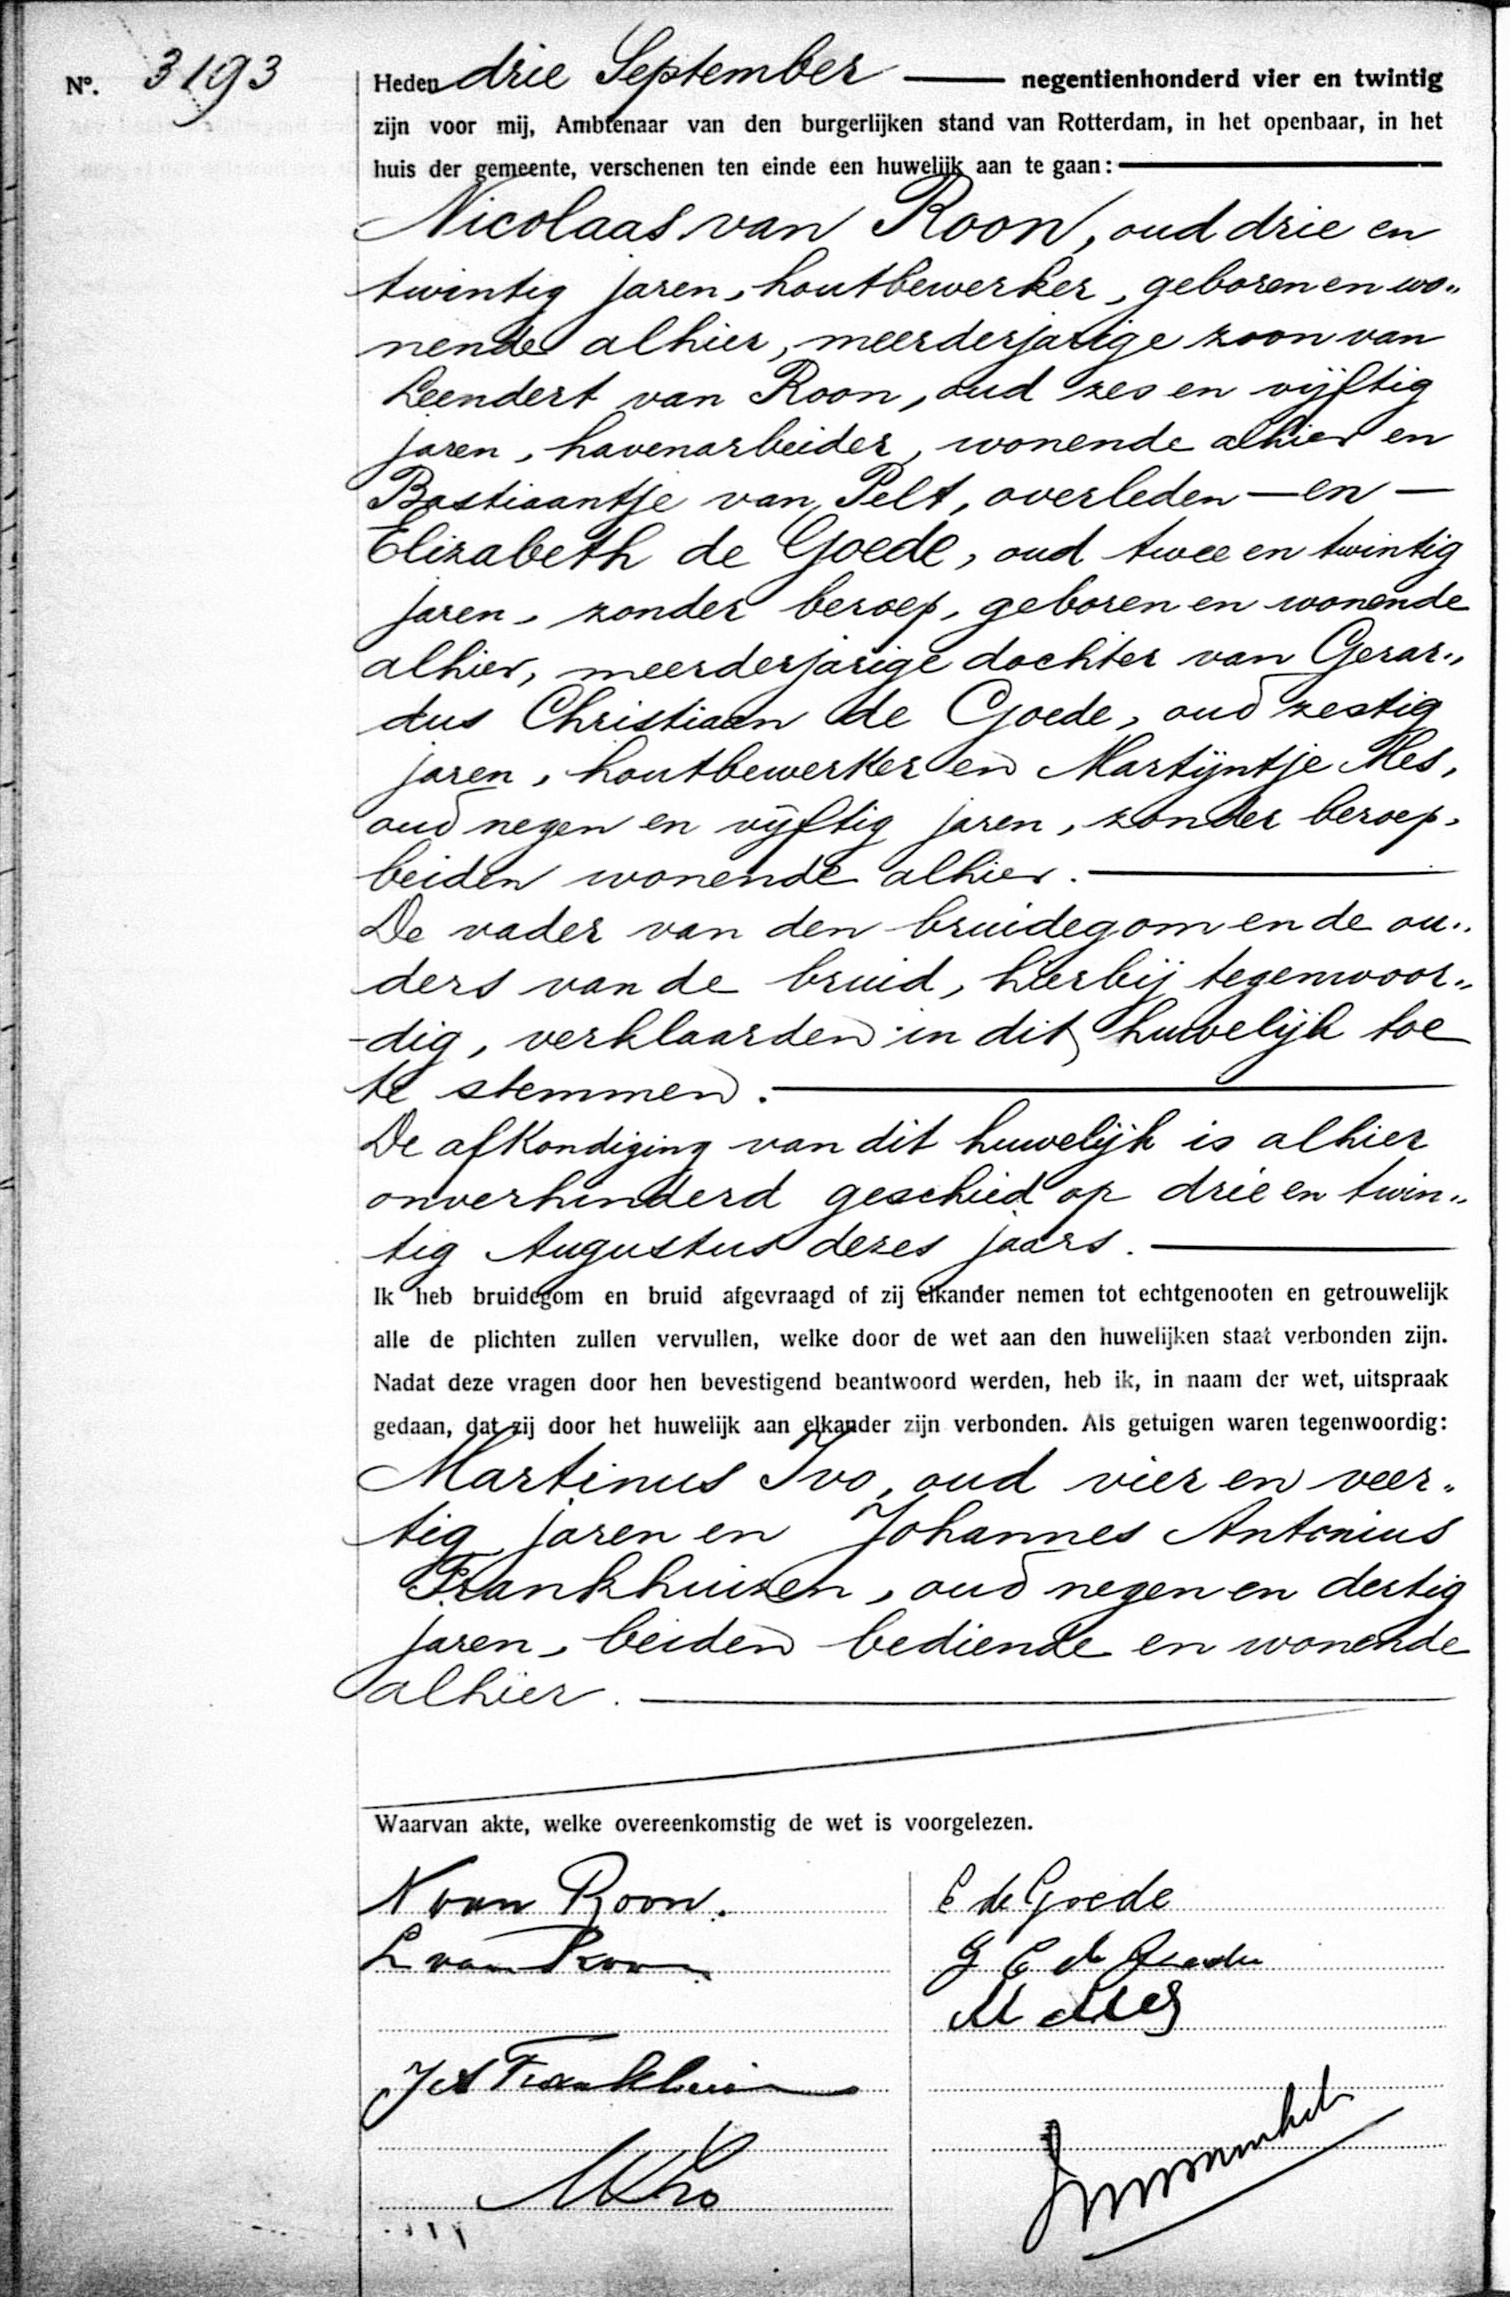 No. 3193
Heden drie September — negentienhonderd vier en twintig
zijn voor mij, Ambtenaar van den burgerlijken stand van Rotterdam, in het openbaar, in het
huis der gemeente, verschenen ten einde een huwelijk aan te gaan: —
Nicolaas van Roon, oud drie en
twintig jaren, houtbewerker, geboren en wo„
nende alhier, meerderjarige zoon van
Leendert van Roon, oud zes en vijftig
jaren, havenarbeider, wonende alhier en
Bastiaantje van Pelt, overleden — en —
Elizabeth de Goede, oud twee en twintig
jaren, zonder beroep, geboren en wonende
alhier, meerderjarige dochter van Gerar„
dus Christiaan de Goede, oud zestig
jaren, houtbewerker en Martijntje Mes,
oud negen en vijftig jaren, zonder beroep,
beiden wonende alhier. —
De vader van den bruidegom en de ou„
ders van de bruid, hierbij tegenwoor„
dig, verklaarden in dit huwelijk toe
te stemmen. —
De afkondiging van dit huwelijk is alhier
onverhinderd geschied op drie en twin„
tig Augustus dezes jaars. —
Ik heb bruidegom en bruid afgevraagd of zij elkander nemen tot echtgenooten en getrouwelijk
alle de plichten zullen vervullen, welke door de wet aan den huwelijken staat verbonden zijn.
Nadat deze vragen door hen bevestigend beantwoord werden, heb ik, in naam der wet, uitspraak
gedaan, dat zij door het huwelijk aan elkander zijn verbonden. Als getuigen waren tegenwoordig:
Martinus Ivo, oud vier en veer„
tig jaren en Johannes Antonius
Frankhuizen, oud negen en dertig
jaren, beiden bediende en wonende
alhier. —
Waarvan akte, welke overeenkomstig de wet is voorgelezen.
N van Roon.
E de Goede
L van Roon
G C de Goede
M Mes
J A Frankhuizen
M Ivo